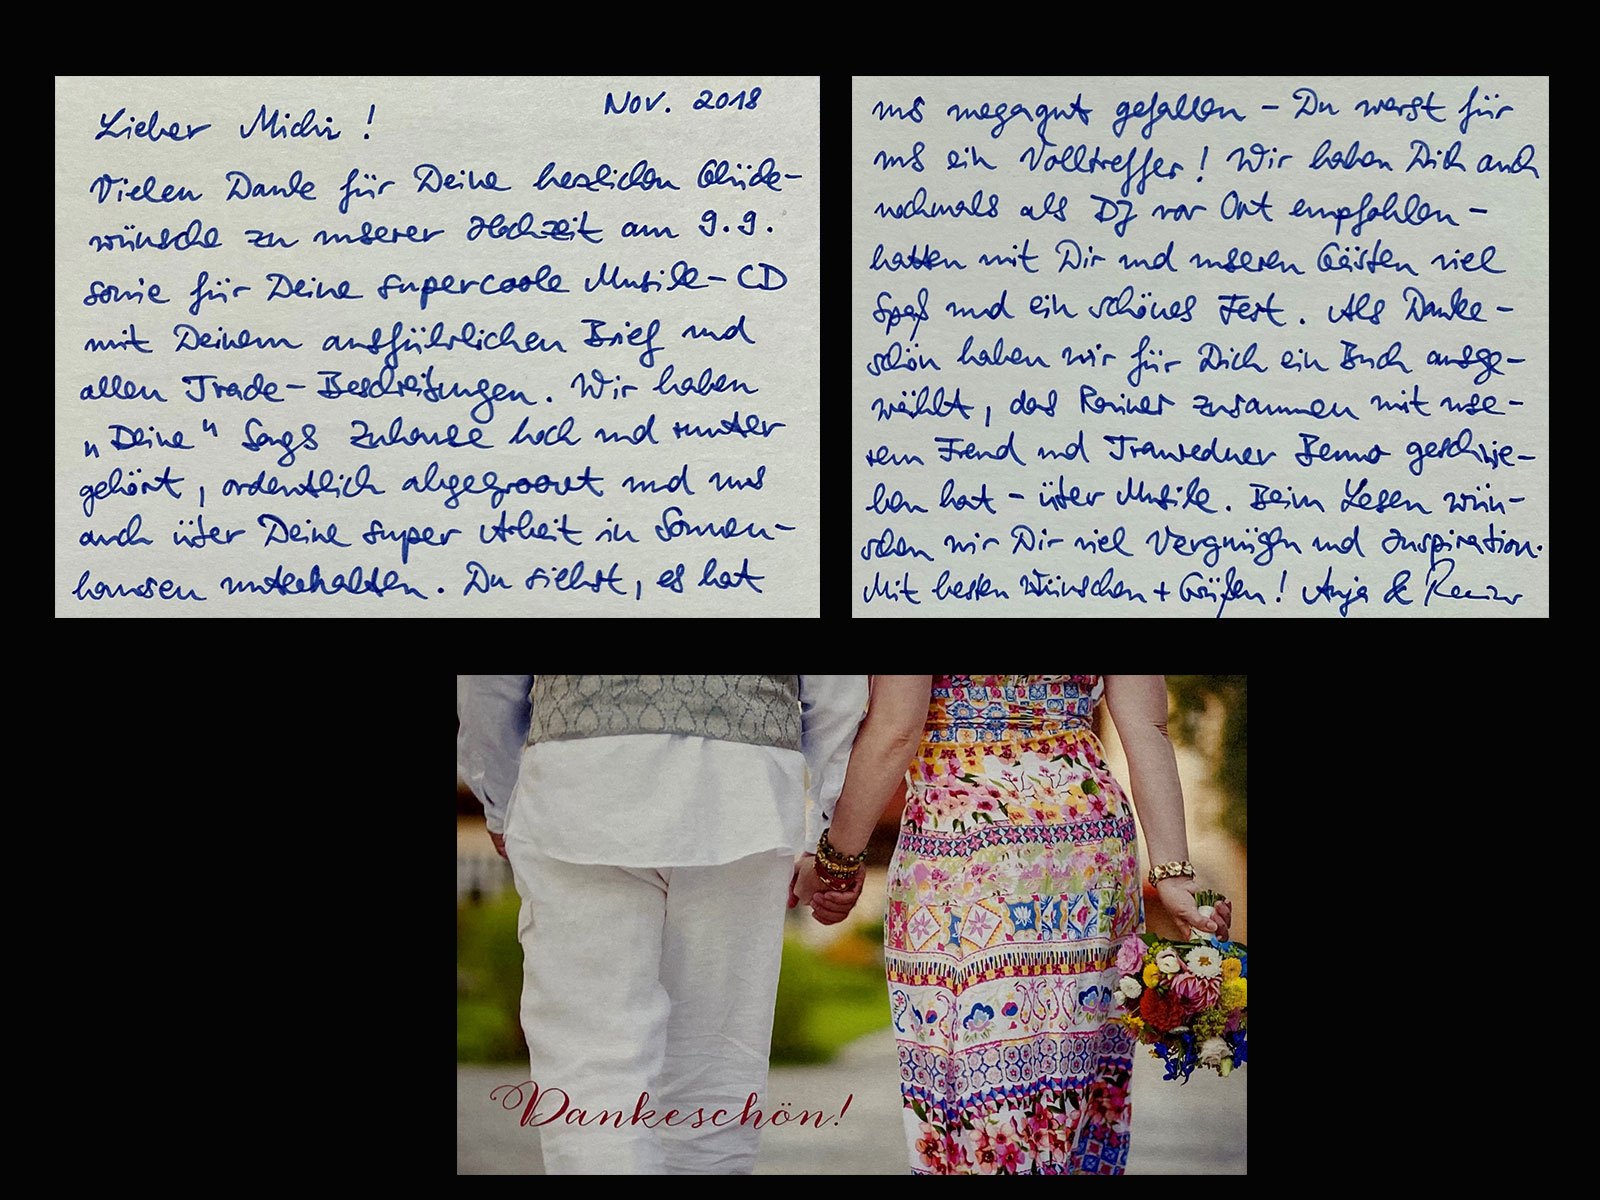 Nov. 2018
Lieber Michi !
Vielen Dank für Deine herzlichen Glück-
wünsche zu unserer Hochzeit am 9.9.
sowie für Deine supercoole Musik-CD
mit Deinem ausführlichen Brief und
allen Track-Beschreibungen. Wir haben
„Deine" Songs Zuhause hoch und runter
gehört, ordentlich abgegroovt und uns
auch über Deine super Arbeit in Sonnen-
hausen unterhalten. Du siehst, es hat
uns megagut gefallen - Du warst für
uns ein Volltreffer! Wir haben Dich auch
nochmals als DJ vor Ort empfohlen -
hatten mit Dir und unseren Gästen viel
Spaß und ein schönes Fest. Als Danke-
schön haben wir für Dich ein Buch ausge-
wählt, das Rainer zusammen mit unse-
rem Freund und Trauredner Benno geschrie-
ben hat - über Musik. Beim Lesen wün-
schen wir Dir viel Vergnügen und Inspiration.
Mit besten Wünschen + Grüßen! Anja & Rainer
Dankeschön!